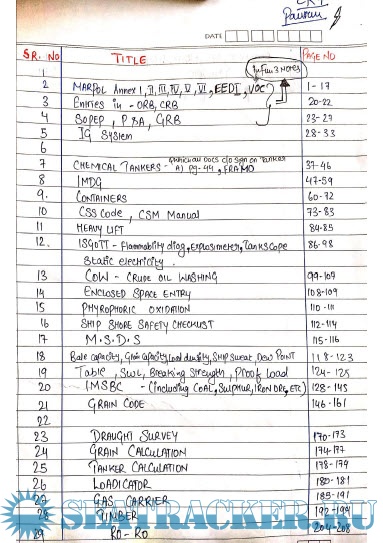 DATE
SR. NO TITLE PAGE NO
1
In Fun 3 Notes
2 MARPOL Annex I, II, III, IV, V, VI, EEDI, VOC 1-17
3 Entries in - ORB, CRB 20-22
4 SOPEP, P&A, GRB 23-27
5 IG System 28-33
6
7 CHEMICAL TANKERS - A) pg-44, FRAMO 37-46
8 IMDG 47-59
9. CONTAINERS 60-72
10 CSS Code, CSM Manual 73-83
11 HEAVY LIFT 84-85
12. ISGOTT - Flammability diag, Explosimeter, Tankscope 86-98
Static electricity.
13 COW - CRUDE OIL WASHING 99-107
14 ENCLOSED SPACE ENTRY 108-109
15 PHYROPHORIC OXIDATION 110-111
16 SHIP SHORE SAFETY CHECKLIST 112-114
17 M.S.D.S 115-116
18 Bale capacity, Grain capacity, Load density, Ship sweat, Dew POINT 118-123
19 Table, SWL, Breaking Strength, Proof Load 124-125
20 IMSBC - (including COAL, SULPHUR, IRON ORE, ETC) 128-145
21 GRAIN CODE 146-161
22
23 DRAUGHT SURVEY 170-173
24 GRAIN CALCULATION 174-177
25 TANKER CALCULATION 178-179
26 LOADICATOR 180-181
27 GAS CARRIER 185-191
28 TIMBER 192-199
29 RO-RO 204-208
SEATRACKER.RU